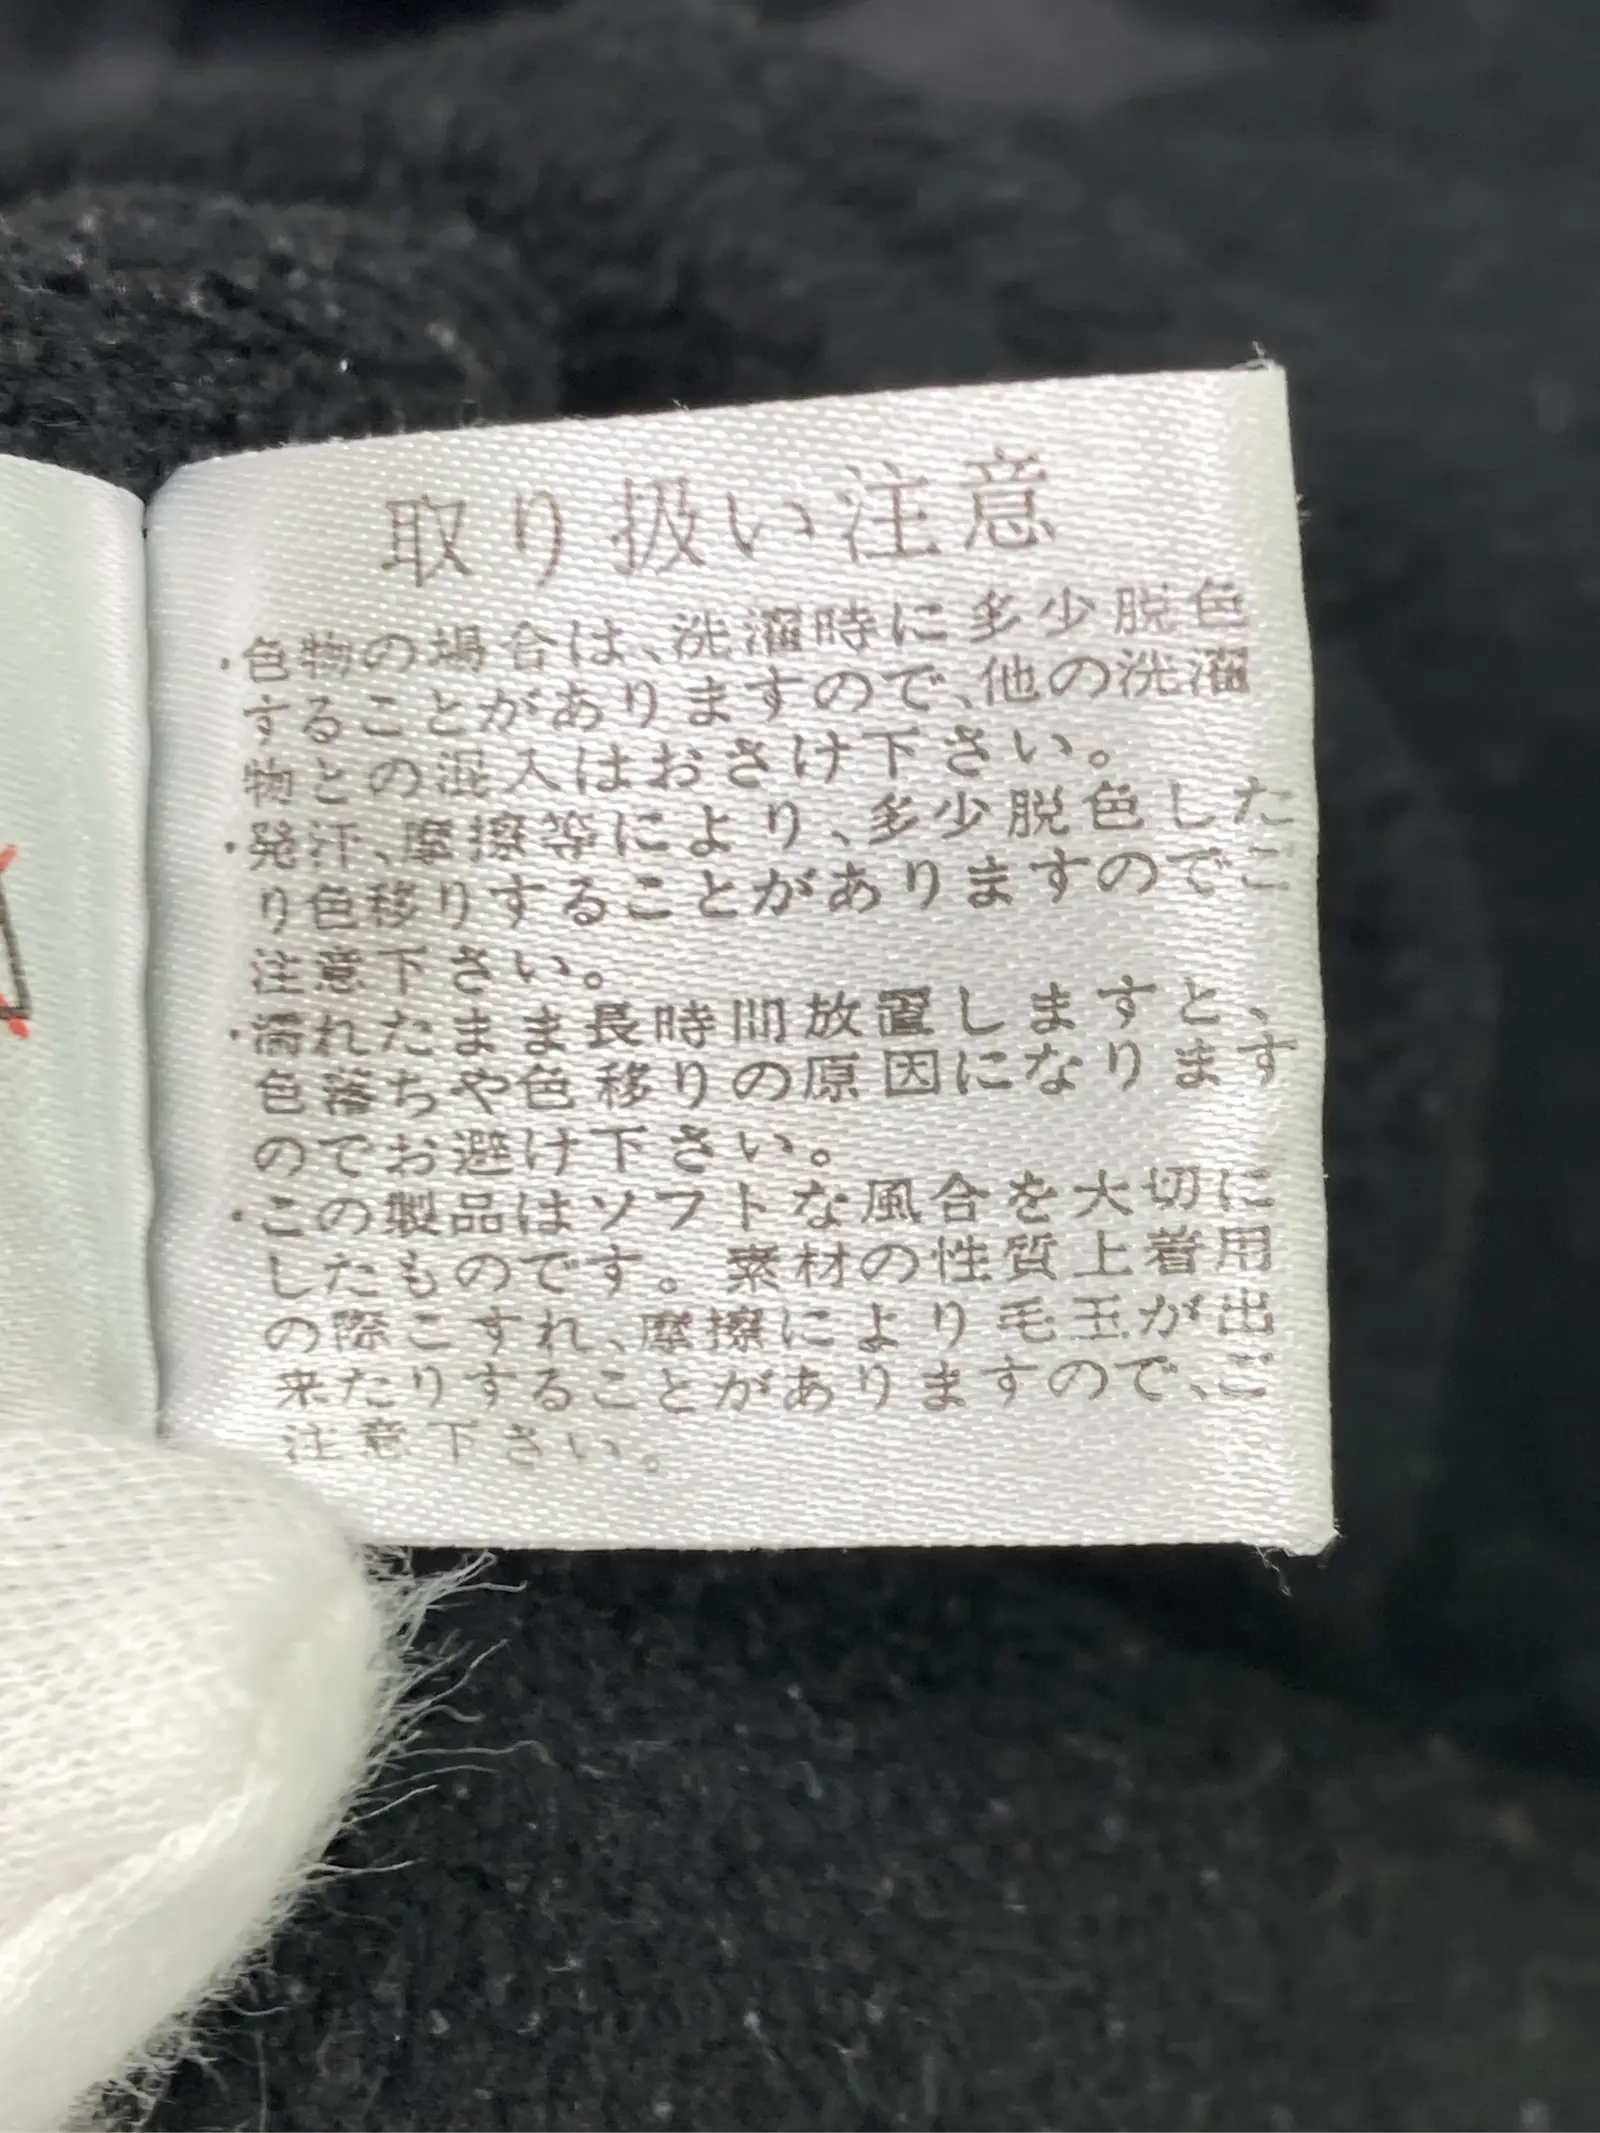 取り扱い注意
・色物の場合は、洗濯時に多少脱色
することがありますので、他の洗濯
物との混入はおさけ下さい。
・発汗、摩擦等により、多少脱色した
り色移りすることがありますのでご
注意下さい。
・濡れたまま長時間放置しますと、
色落ちや色移りの原因になります
のでお避け下さい。
・この製品はソフトな風合を大切に
したものです。素材の性質上着用
の際こすれ、摩擦により毛玉が出
来たりすることがありますので、ご
注意下さい。